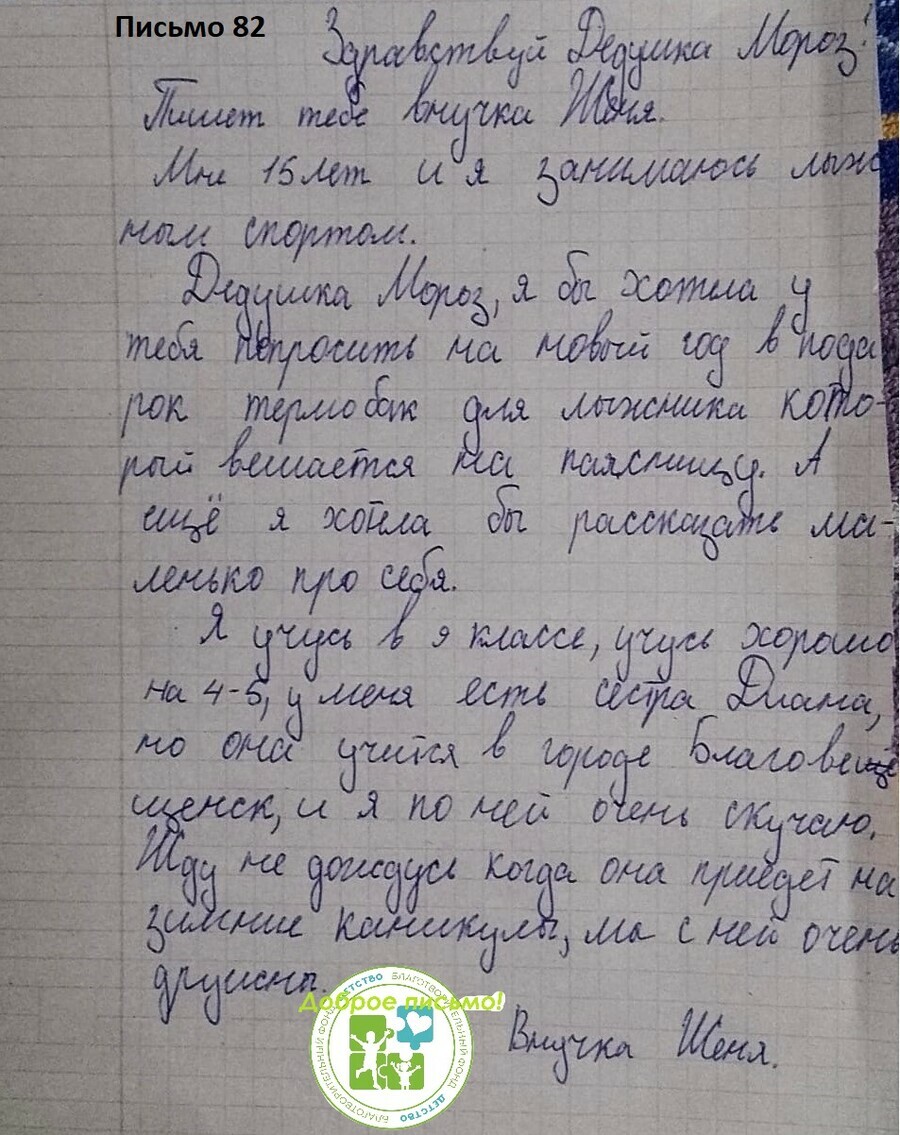 Письмо 82
Здравствуй Дедушка Мороз!
Пишет тебе внучка Женя.
Мне 15 лет и я занимаюсь лыж
ным спортом.
Дедушка Мороз, я бы хотела у
тебя попросить на новый год в пода
рок термобак для лыжника кото-
рый вешается на паясницу. А
ещё я хотела бы рассказать ма-
ленько про себя.
Я учусь в 9 классе, учусь хорошо
на 4-5, у меня есть сестра Диана,
но она учится в городе Благовеще
щенск, и я по ней очень скучаю.
Жду не дождусь когда она приедет на
зимние каникулы, мы с ней очень
дружны.
Доброе письмо!
Внучка Женя.
БЛАГОТВОРИТЕЛЬНЫЙ ФОНД ДЕТСТВО БЛАГОТВОРИТЕЛЬНЫЙ ФОНД ДЕТСТВО